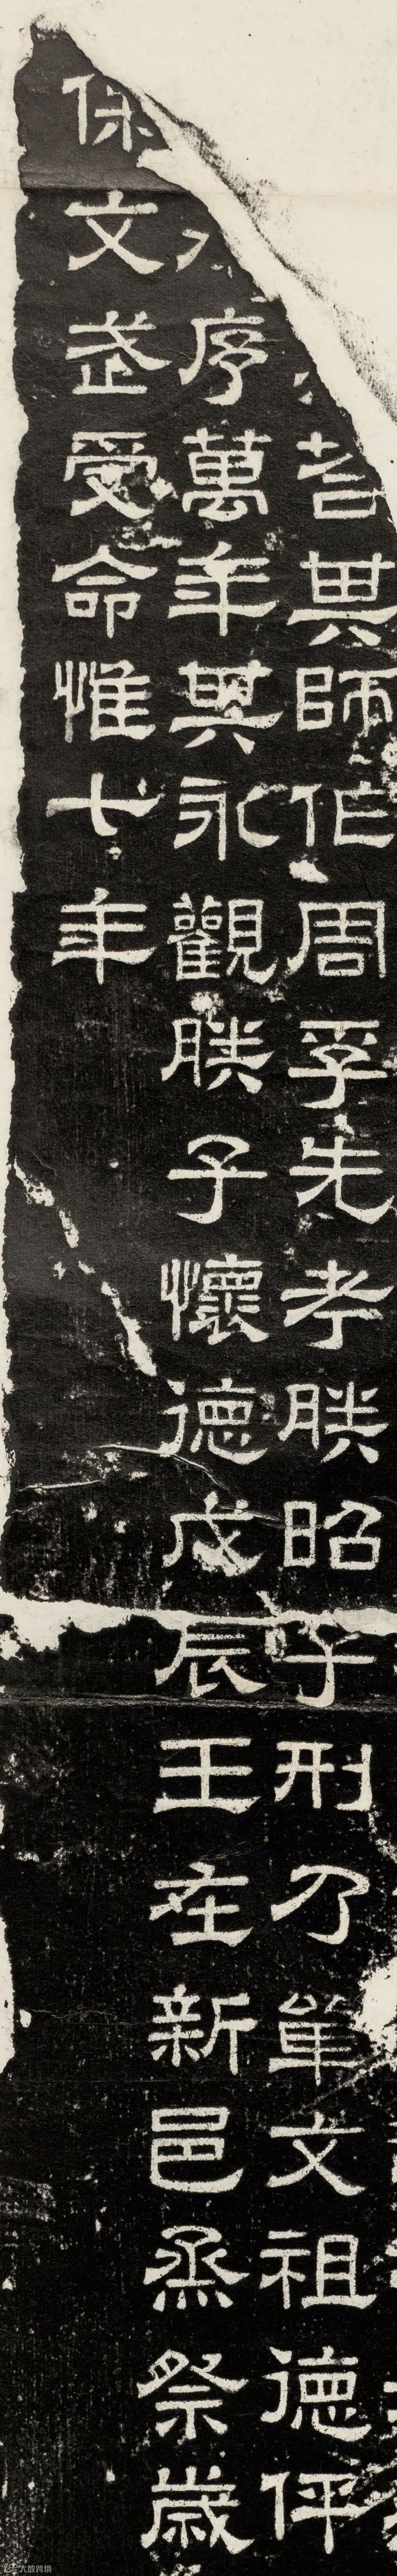 其師作周孚先考朕昭子刑乃單文祖德伻
序萬年其永觀朕子懷德戊辰王在新邑烝祭歲
保文武受命惟七年